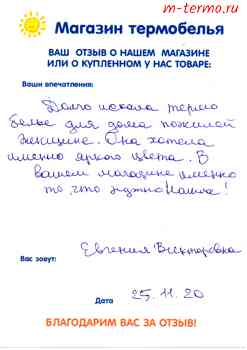 m-termo.ru
Магазин термобелья
ВАШ ОТЗЫВ О НАШЕМ МАГАЗИНЕ
ИЛИ О КУПЛЕННОМ У НАС ТОВАРЕ:
Ваши впечатления:
Долго искала термо
белье для дома пожилой
женщине. Она хотела
именно яркого цвета. В
вашем магазине именно
то, что нужно нашла!
Евгения Викторовна
Вас зовут:
Дата 25.11.20
БЛАГОДАРИМ ВАС ЗА ОТЗЫВ!